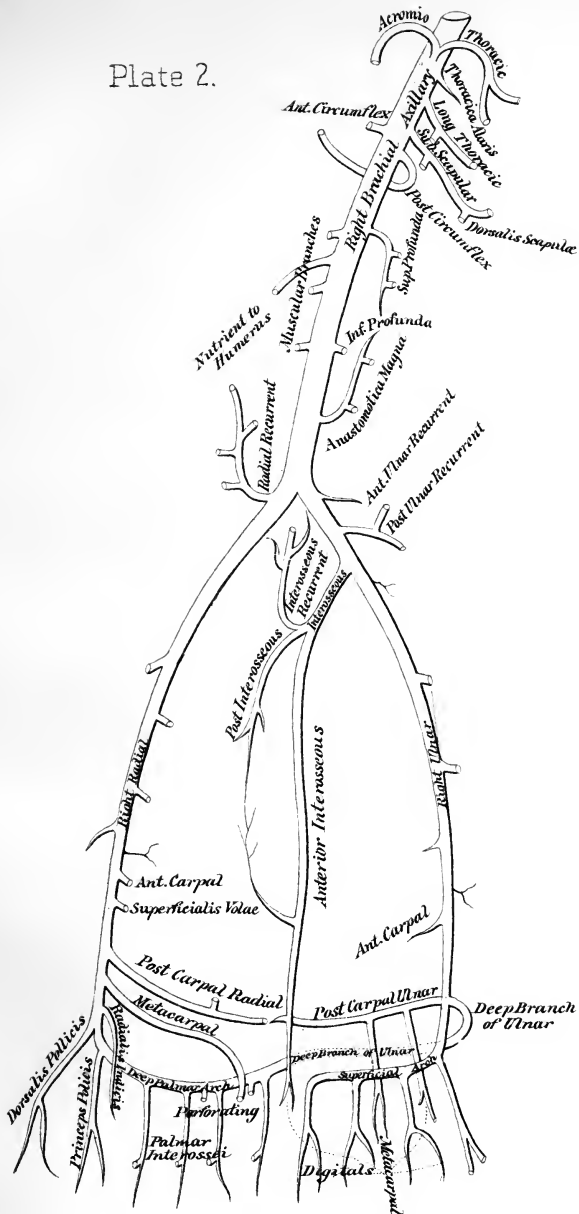 Plate 2.
Acromio
Thoracic
Thoracica Alaris
Long Thoracic
Axillary
Ant. Circumflex
Sub. Scapular
Dorsalis Scapulæ
Post Circumflex
Right Brachial
Sup. Profunda
Muscular Branches
Nutrient to
Humerus
Inf. Profunda
Anastomotica Magna
Radial Recurrent
Ant. Ulnar Recurrent
Post Ulnar Recurrent
Interosseous
Recurrent
Interosseous
Post Interosseous
Anterior Interosseous
Right Radial
Right Ulnar
Ant. Carpal
Superficialis Volae
Ant. Carpal
Post Carpal Radial
Post Carpal Ulnar
Deep Branch
of Ulnar
Metacarpal
Radialis Indicis
Dorsalis Pollicis
Princeps Policis
Deep Palmar Arch
Deep Branch of Ulnar
Superficial Arch
Perforating
Palmar
Interossei
Digitals
Metacarpal